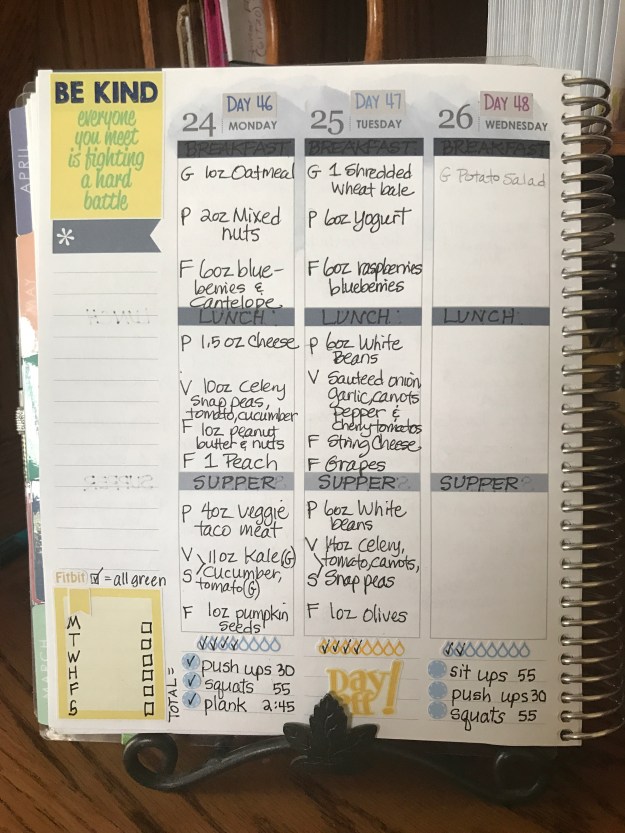 APRIL
BE KIND
everyone
you meet
is fighting
a hard
battle
*
Fitbit ☑ = all green
M
T
W
H
F
S
MARCH
DAY 46
24 MONDAY
BREAKFAST
G 1oz Oatmeal
P 2oz Mixed
nuts
F 6oz blue-
berries &
Cantelope
LUNCH
P 1.5 oz Cheese
V 10oz Celery
Snap peas,
tomato, cucumber
F 1oz peanut
butter & nuts
F 1 Peach
SUPPER
P 4oz veggie
taco meat
V 11oz Kale (G)
S Cucumber,
tomato (G)
F 1oz pumpkin
seeds
TOTAL =
push ups 30
squats 55
plank 2:45
DAY 47
25 TUESDAY
BREAKFAST
G 1 Shredded
wheat bale
P 6oz Yogurt
F 6oz raspberries
blueberries
LUNCH
P 6oz White
Beans
V Sauteed onion
garlic, carrots
pepper &
cherry tomatos
F String Cheese
F Grapes
SUPPER
P 6oz White
beans
V 14oz celery,
tomato, carrots,
S Snap peas
F 1oz Olives
Day
off!
DAY 48
26 WEDNESDAY
BREAKFAST
G Potato Salad
LUNCH
SUPPER
sit ups 55
push ups 30
squats 55